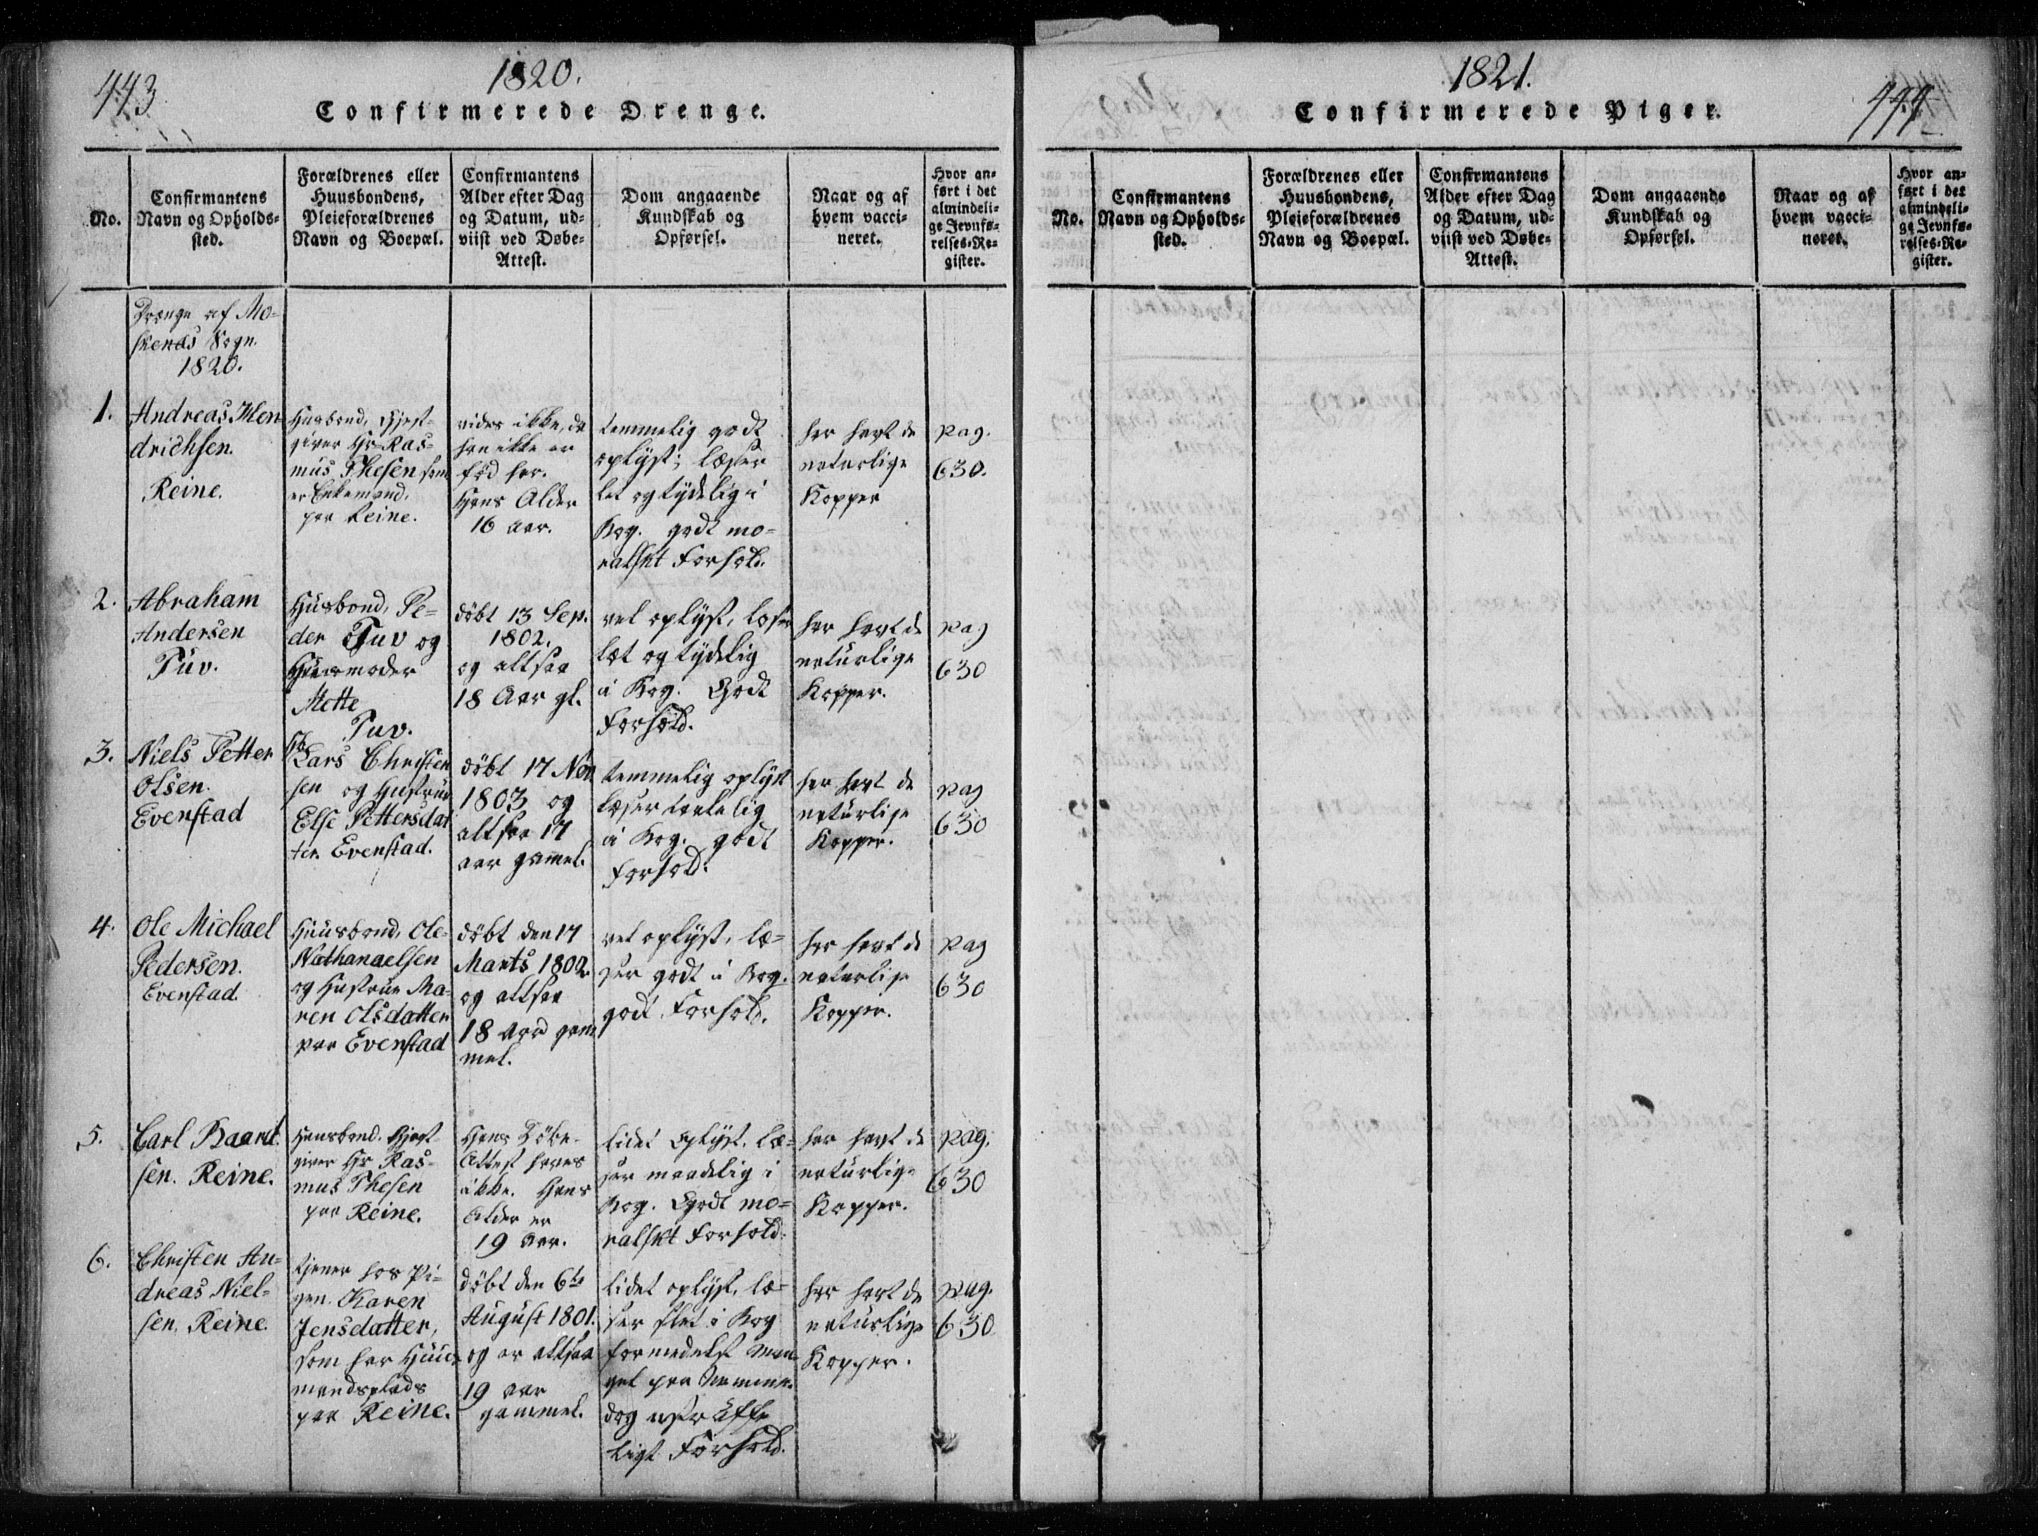 443
1820.
Confirmerede Drenge.
No.
Confirmantens
Navn og Opholds-
sted.
Forældrenes eller
Huusbondens,
Pleieforældrenes
Navn og Boepæl.
Confirmantens
Alder efter Dag
og Datum, ud-
viist ved Døbe-
Attest.
Dom angaaende
Kundskab og
Opførsel.
Naar og af
hvem vacci-
neret.
Hvor an-
ført i det
almindeli-
ge Jevnfø-
relses-Re-
gister.
Drenge af Mo-
skenæs Sogn.
1820.
1.
Andreas Hen
drichsen.
Reine.
Husbond, Gjest-
giver Hr Ras-
mus Thesen som
er Enkemand,
paa Reine.
vides ikke, da
han ikke er
fød her.
Hans Alder
16 aar.
temmelig godt
oplyst; læser
let og tydelig i
Bog. godt mo-
ralskt Forhold.
har havt de
naturlige
Kopper
pag.
630.
2.
Abraham
Andersen
Tuv.
Husbond, Pe-
der Tuv og
Husmoder
Mette
Tuv.
døbt 13 Sep.
1802.
og altsaa
18 Aar gl.
vel oplyst, læser
let og tydelig
i Bog. Godt
Forhold.
har havt de
naturlige
Kopper.
pag
630
3.
Niels Petter
Olsen.
Evenstad
Lars Christen
sen og Hustrue
Else Pettersdat
ter Evenstad.
døbt 17 Nov
1803 og
altsaa 17
aar gammel.
temmelig oplyst
læser taalelig
i Bog. godt
Forhold.
har havt de
naturlige
Kopper.
pag
630
4.
Ole Michael
Pedersen.
Evenstad.
Huusbond, Ole
Nathanaelsen
og Hustrue Ma-
ren Olsdatter
paa Evenstad
døbt den 17
Marts 1802
og altsaa
18 Aar gam
mel.
vel oplyst, læ-
ser godt i Bog.
godt Forhold.
har havt de
naturlige
Kopper.
pag
630
5.
Carl Baard
sen. Reine.
Huusbond. Gjest
giver Hr Ras-
mus Thesen
paa Reine.
Hans Døbe-
Attest haves
ikke. Hans
Alder er
19 aar.
lidet Oplyst. læ-
ser maadelig i
Bog. Godt mo-
ralskt Forhold.
har havt de
naturlige
Kopper.
pag.
630
6.
Christen An-
dreas Niel-
sen. Reine.
tjener hos Pi-
gen Karen
Jensdatter,
som har Huus
mandsplads
paa Reine.
døbt den 6te
August 1801.
og er altsaa
19 aar
gammel.
lidet oplyst. læ-
ser slet i Bog
formedelst Man
gel paa Nemme.
dog ustraffe
ligt Forhold.
har havt de
naturlige
Kopper.
pag.
630
1821.
Confirmerede Piger.
444
No.
Confirmantens
Navn og Opholds-
sted.
Forældrenes eller
Huusbondens,
Pleieforældrenes
Navn og Boepæl.
Confirmantens
Alder efter Dag
og Datum, ud-
viist ved Døbe-
Attest.
Dom angaaende
Kundskab og
Opførsel.
Naar og af
hvem vacci-
neret.
Hvor an-
ført i det
almindeli-
ge Jevnfø-
relses-Re-
gister.